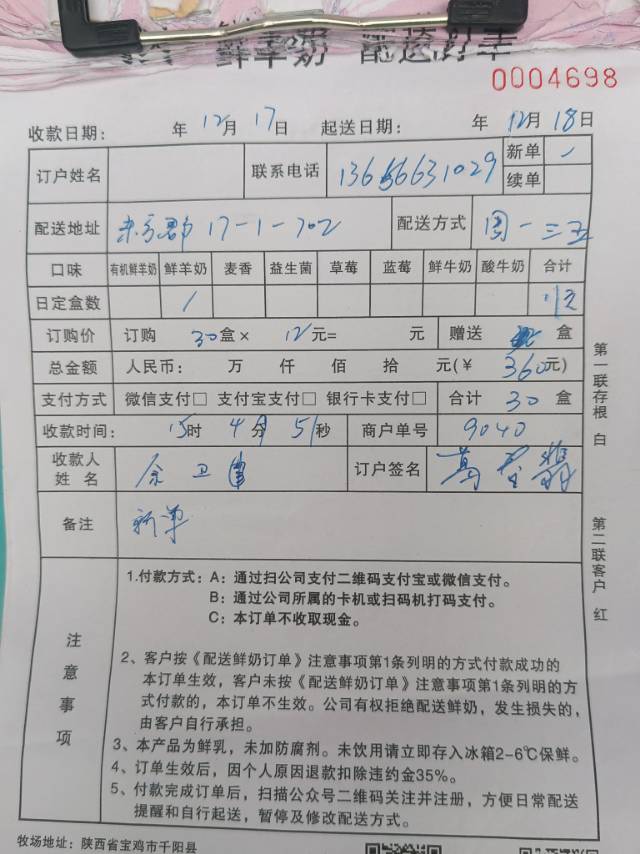 鲜羊奶 配送订单
0004698
收款日期： 年 12月 17日 起送日期： 年 12月 18日
订户姓名 联系电话 13656631029 新单 /
续单
配送地址 东方郡 17-1-702 配送方式 周一三五
口味 有机鲜羊奶 鲜羊奶 麦香 益生菌 草莓 蓝莓 鲜牛奶 酸牛奶 合计
日定盒数 1
订购价 订购 30 盒× 12 元= 元 赠送 盒
总金额 人民币： 万 仟 佰 拾 元(￥ 360元)
支付方式 微信支付□ 支付宝支付□ 银行卡支付□ 合计 30 盒
收款时间： 15时 4分 51秒 商户单号 9040
收款人姓名 余卫 订户签名
备注 新单
第一联存根 白
第二联客户 红
注意事项
1.付款方式：A：通过扫公司支付二维码支付宝或微信支付。
B：通过公司所属的卡机或扫码机打码支付。
C：本订单不收取现金。
2、客户按《配送鲜奶订单》注意事项第1条列明的方式付款成功的
本订单生效，客户未按《配送鲜奶订单》注意事项第1条列明的方
式付款的，本订单不生效。公司有权拒绝配送鲜奶，发生损失的，
由客户自行承担。
3、本产品为鲜乳，未加防腐剂。未饮用请立即存入冰箱2-6℃保鲜。
4、订单生效后，因个人原因退款扣除违约金35%。
5、付款完成订单后，扫描公众号二维码关注并注册，方便日常配送
提醒和自行起送，暂停及修改配送方式。
牧场地址：陕西省宝鸡市千阳县